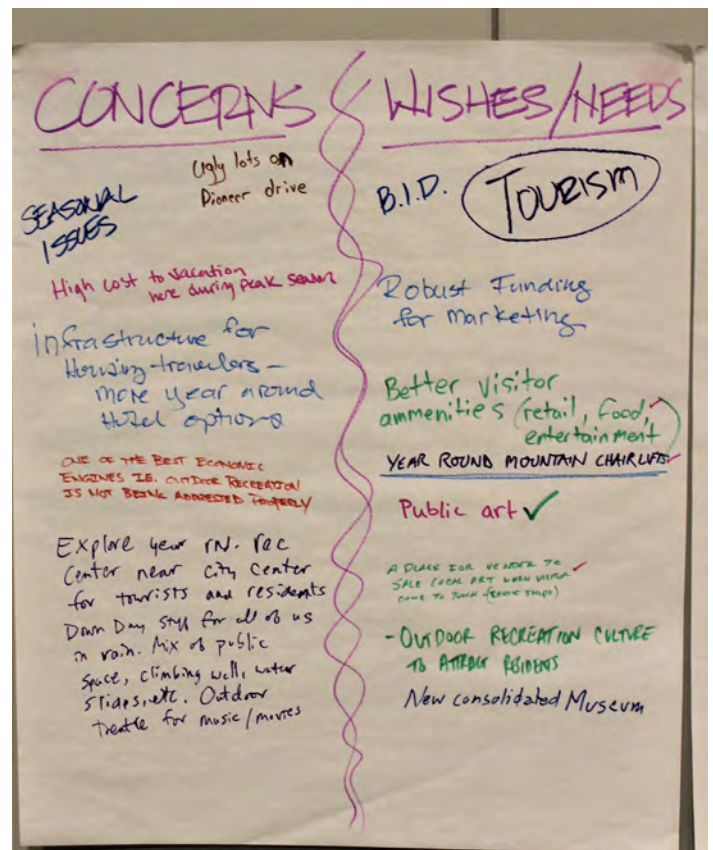 CONCERNS
Ugly lots on
Pioneer drive
SEASONAL
ISSUES
High cost to vacation
here during peak season
infrastructure for
Housing travelers -
more year around
Hotel options
ONE OF THE BEST ECONOMIC
ENGINES I.E. OUTDOOR RECREATION
IS NOT BEING ADDRESSED PROPERLY
Explore year rn. rec
Center near city center
for tourists and residents
Down Day stuff for all of us
in rain. Mix of public
space, climbing wall, water
slides, etc. Outdoor
theatre for music/movies
WISHES/NEEDS
B.I.D. TOURISM
Robust Funding
for marketing
Better visitor
ammenities (retail, food,
entertainment)
YEAR ROUND MOUNTAIN CHAIRLIFTS
Public art ✓
A PLACE FOR VENDER TO
SALE LOCAL ART WHEN VISITOR
COME TO TOWN
- OUTDOOR RECREATION CULTURE
TO ATTRACT RESIDENTS
New consolidated Museum